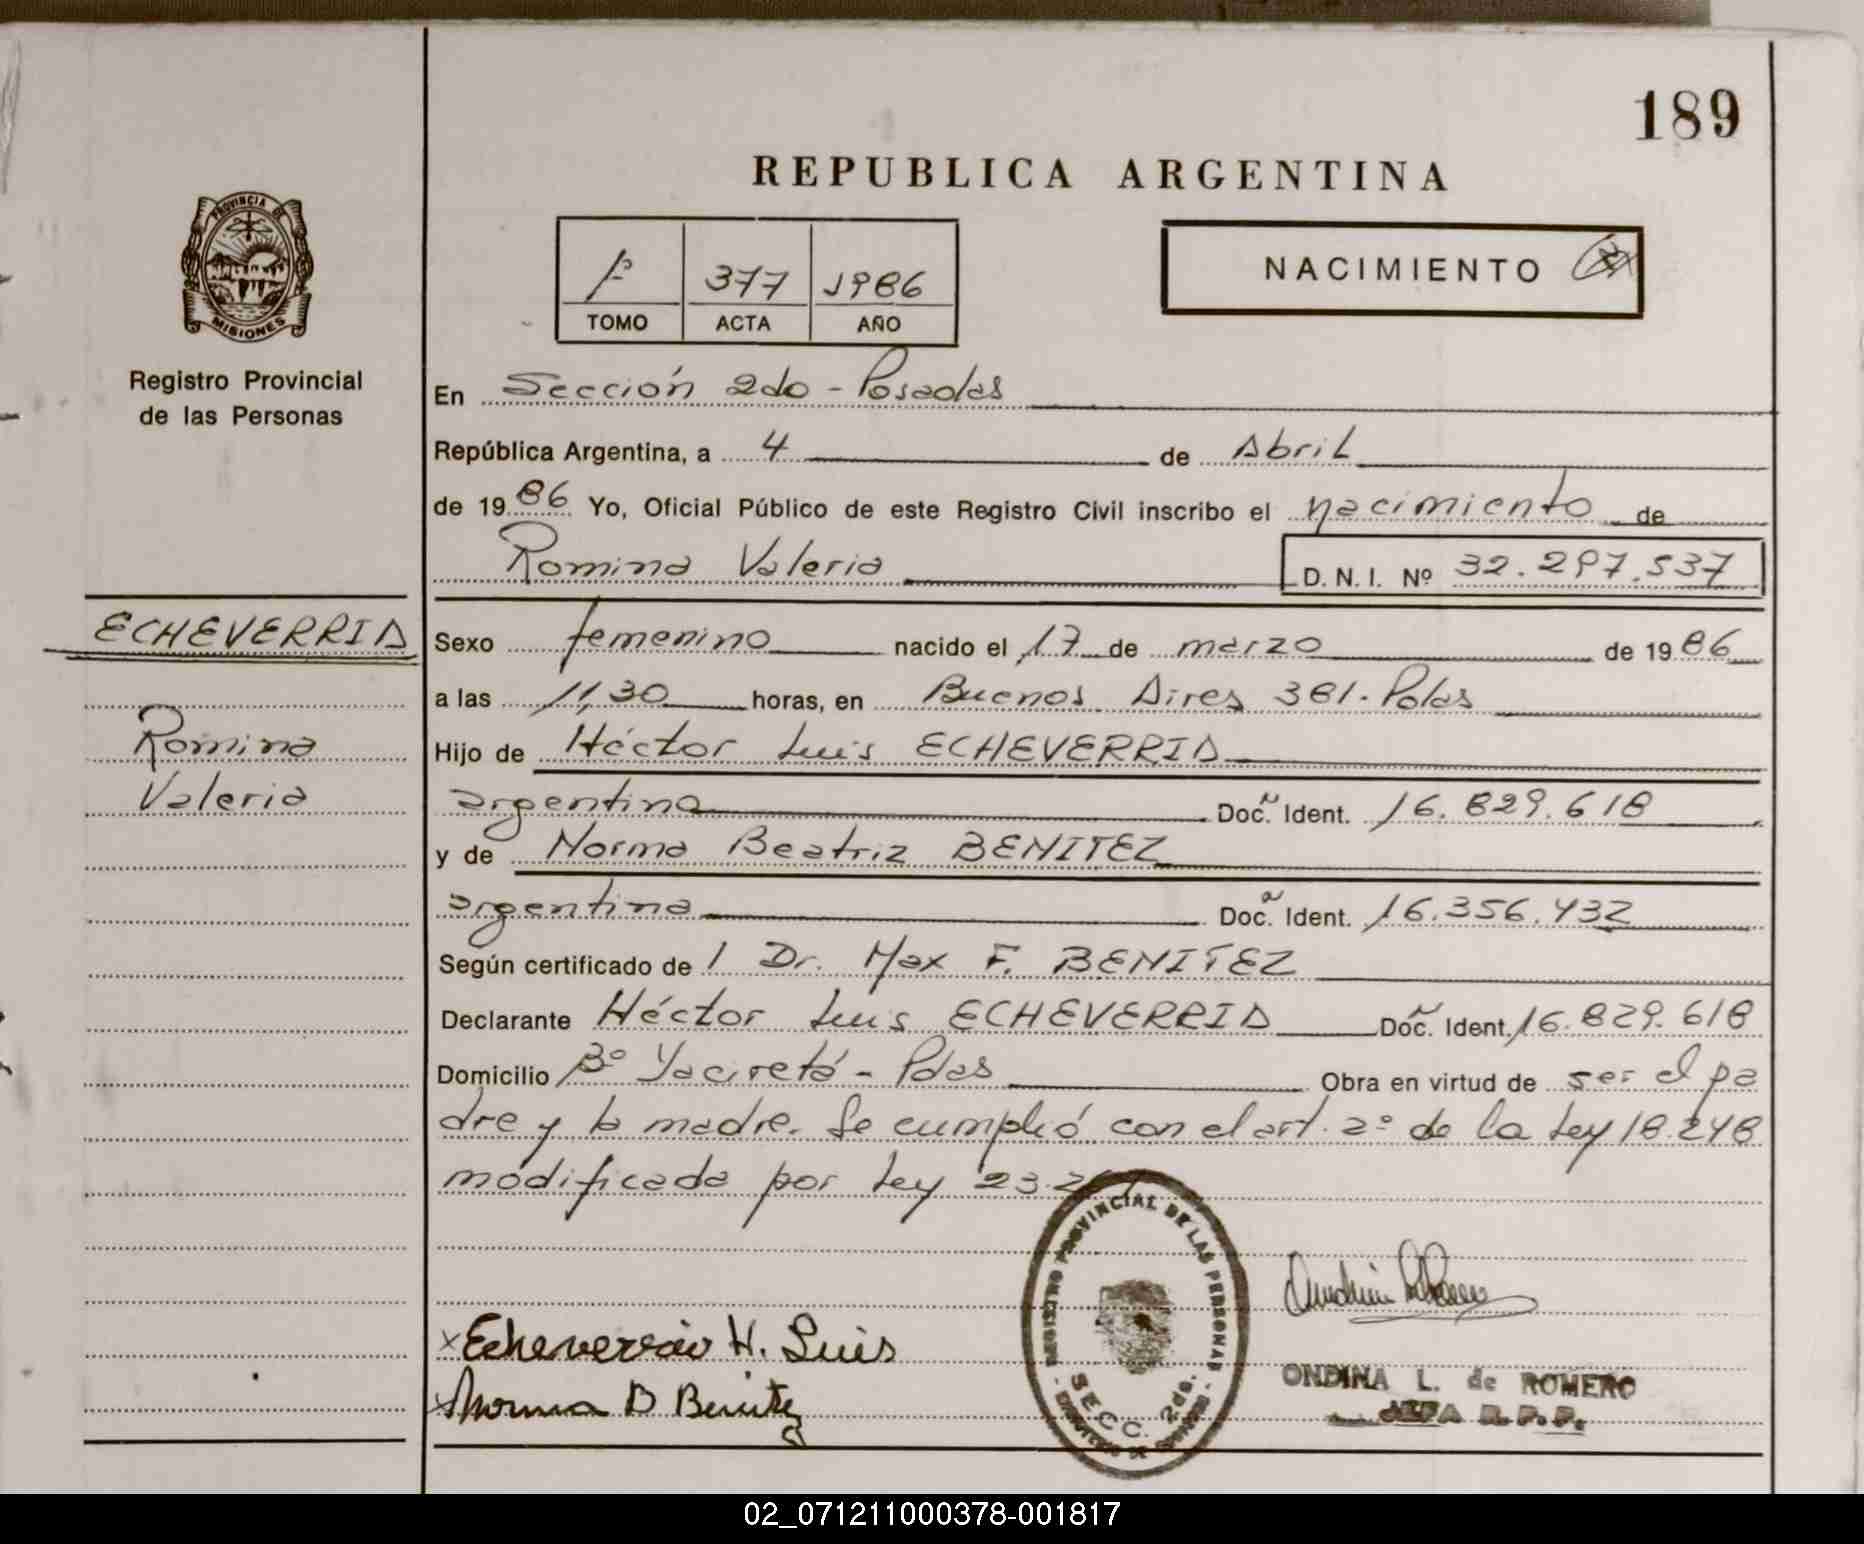 189
REPUBLICA ARGENTINA
PROVINCIA DE
MISIONES
Registro Provincial
de las Personas
377 1986
TOMO ACTA AÑO
NACIMIENTO
En Sección 2da - Posadas
República Argentina, a 4 de Abril
de 1986 Yo, Oficial Público de este Registro Civil inscribo el nacimiento de
Romina Valeria D. N. I. Nº 32.297.537
ECHEVERRIA
Romina
Valeria
Sexo femenino nacido el 17 de marzo de 1986
a las 11,30 horas, en Buenos Aires 381 - Pdas
Hijo de Héctor Luis ECHEVERRIA
argentina Doc. Ident. 16.829.618
y de Norma Beatriz BENITEZ
argentina Doc. Ident. 16.356.432
Según certificado de 1 Dr. Max F. BENITEZ
Declarante Héctor Luis ECHEVERRIA Doc. Ident. 16.829.618
Domicilio Bº Yaciretá - Pdas Obra en virtud de ser el pa
dre y la madre. Se cumplió con el art. 2º de la Ley 18.248
modificada por Ley
REGISTRO PROVINCIAL DE LAS PERSONAS
SECC. 2da.
x Echeverria H. Luis
x Norma B Benitez
ONDINA L. de ROMERO
JEFA R. P. P.
02_071211000378-001817